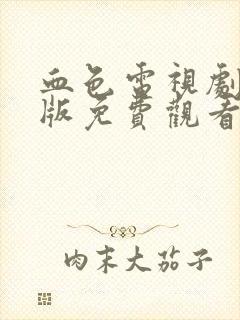 血色雷視劇
版免費觀看
肉末大茄子